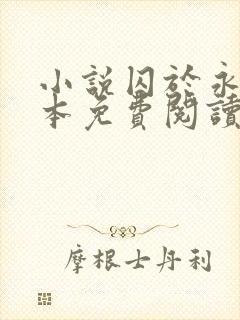 小說囚於永
本免費閱讀
摩根士丹利